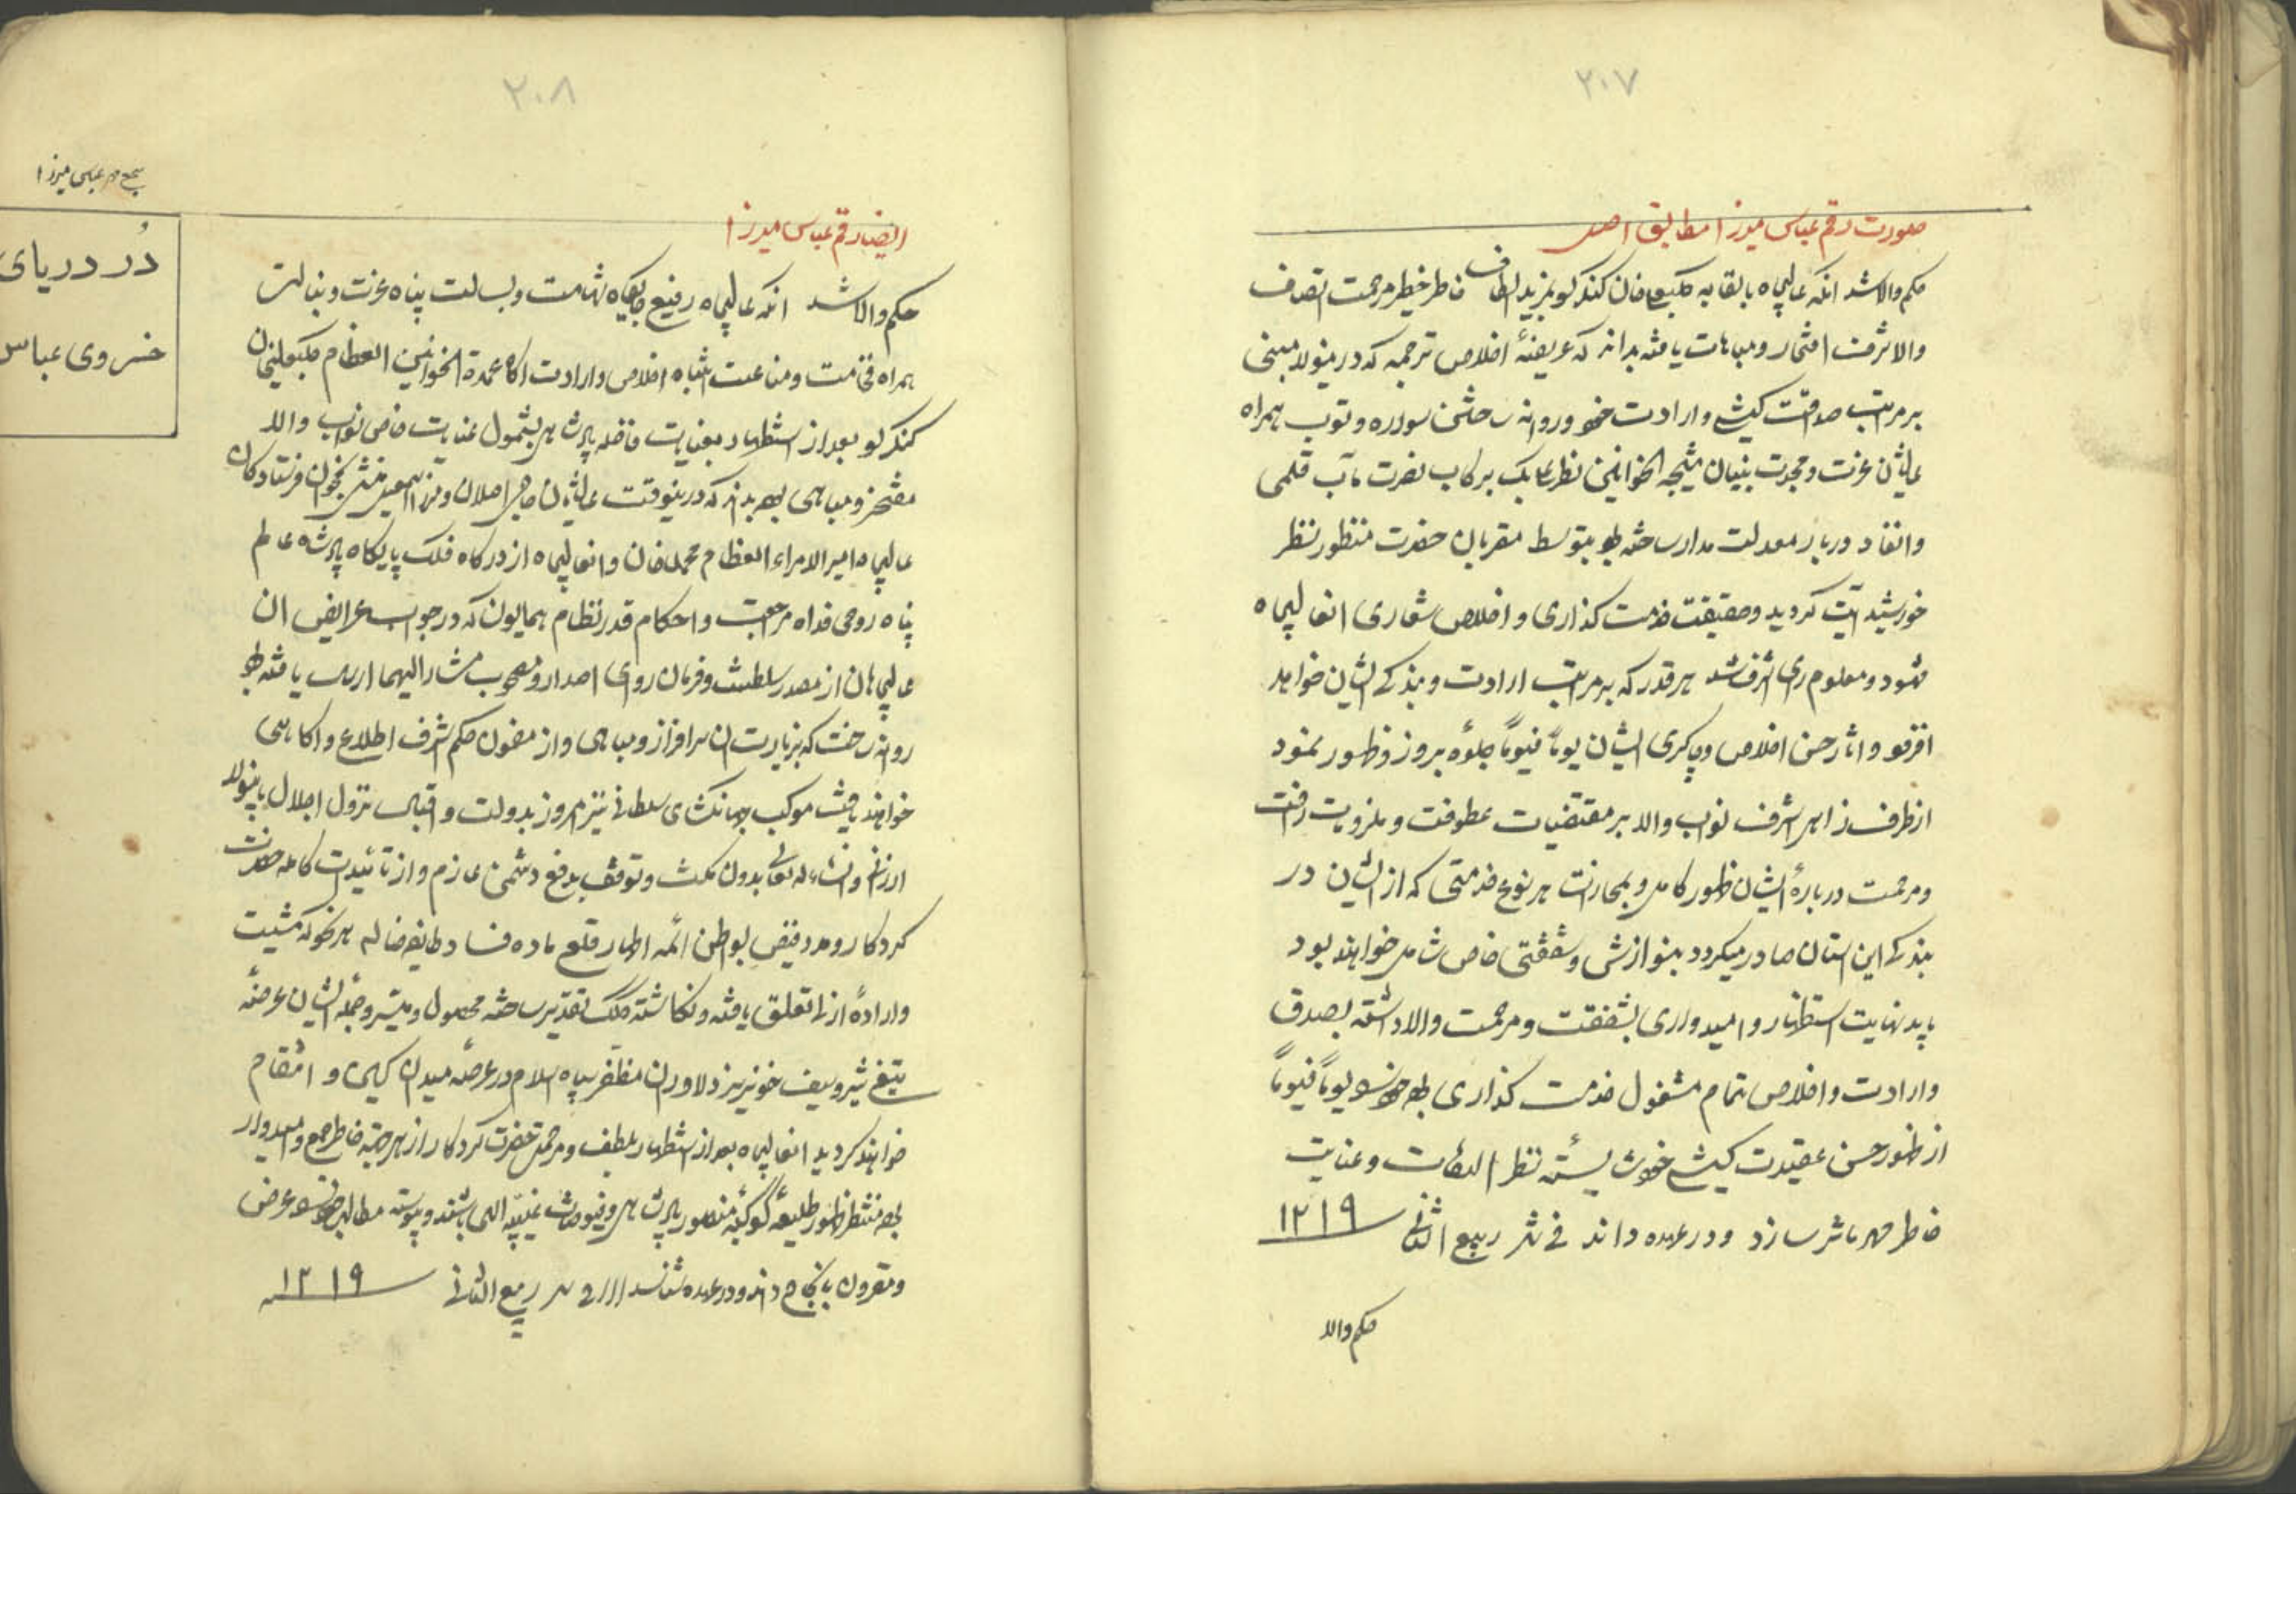 ۲۰۷
صورت رقم عباس میرزا مطابق اصل
حکم والا شد انکه عالیجاه بالقابه کلبعلیخان کنکرلو بمزید الطاف خاطر خطیر مرحمت اتصاف
والا شرف افتخار و مباهات یافته بداند که عریضهٔ اخلاص ترجمه که درینولا مبنی
بر مراتب صداقت کیشی و ارادت خود و روانه ساختن سورده و توپ همراه
عالیشان عزت و نجدت بنیان نتیجه الخوانین نظرعلی بک برکاب نصرت مآب قلمی
و انفاد دربار معدلت مدار ساخته بود بتوسط مقربان حضرت منظور نظر
خورشید آیت کردید و حقیقت خدمت کذاری و اخلاص شعاری انعالیجاه
مشهود و معلوم رای اشرف شد هر قدر که بر مراتب ارادت و بندکی ایشان خواهد
افزود و اثار حسن اخلاص و چاکری ایشان یوماً فیوماً جلوه بروز و ظهور نمود
از طرف زاهر الشرف نواب والا بر مقتضیات عطوفت و ملزومات رافت
و مرحمت در بارهٔ ایشان ظهور کامل و بمجازات هر نوع خدمتی که از ایشان در
بندکی این استان صادر میکردد بنوازش و شفقتی خاص شامل خواهند بود
باید نهایت استظهار و امیدواری بشفقت و مرحمت والا داشته بصدق
و ارادت و اخلاص تمام مشغول خدمت کذاری بوده خود را یوماً فیوماً
از ظهور حسن عقیدت کیشی خود شایسته نظر التفات و عنایت
خاطر مهر ماثر سازد و در عهده داند فی شهر ربیع الثانی ۱۲۱۹
حکم والا
۲۰۸
ایضا رقم عباس میرزا
حکم والا شد انکه عالیجاه رفیع جایکاه شهامت و بسالت پناه عزت و نبالت
همراه فخامت و مناعت انتباه اخلاص و ارادت اکاه عمدة الخوانین العظام کلبعلیخان
کنکرلو بعد از استظهار بعنایت خاصه پادشاهی بشمول عنایت خاص نواب والا
مفتخر و مباهی بوده بداند که درینوقت عالیشان اصلان و میرزا اسمعیل منشی نخجوان فرستادکان
عالیجاه امیر الامراء العظام محمدخان و انعالیجاه از درکاه فلک پایکاه پادشاه عالم
پناه روحی فداه مراجعت و احکام قدر نظام همایون که در جواب عرایض ان
عالیجاهان از مصدر سلطنت و فرمان روائی اصدار و مصحوب مشار الیهما ارسال یافته بود
روانه ساخت که بزیارت ان سرافراز و مباهی و از مضمون حکم اشرف اطلاع و اکاهی
خواهند یافت موکب جهانکشای سلطانی نیز امروز بدولت و اقبال نزول اجلال باینولا
ارزانی و انشاء الله تعالی بدون مکث و توقف بدفع دشمن عازم و از تائیدات کامله حضرت
کردکار و مدد فیض بواطن ائمه اطهار قلع ماده فساد طایفه ضاله بر نحو که مشیت
و ارادهٔ ازلی تعلق یافته و نکاشته کلک تقدیر ساخته محصول و میسر و جمله ایشان عرضه
تیغ شیر و سیف خونریز دلاوران مظفر سپاه اسلام در عرصه میدان کین و انتقام
خواهند کردید انعالیجاه بعد از استظهار بلطف و مرحمت حضرت کردکار از هر جهت خاطر جمع و امیدوار
بوده منتظر ظهور طلیعهٔ کوکبهٔ منصور پادشاهی و فیوضات غیبیه الهی باشند و پیوسته مطالب خود را عرض
و مقرون بانجاح دانند و در عهده شناسند ربیع الثانی ۱۲۱۹
سجع مهر عباس میرزا
دُر دریای
خسروی عباس